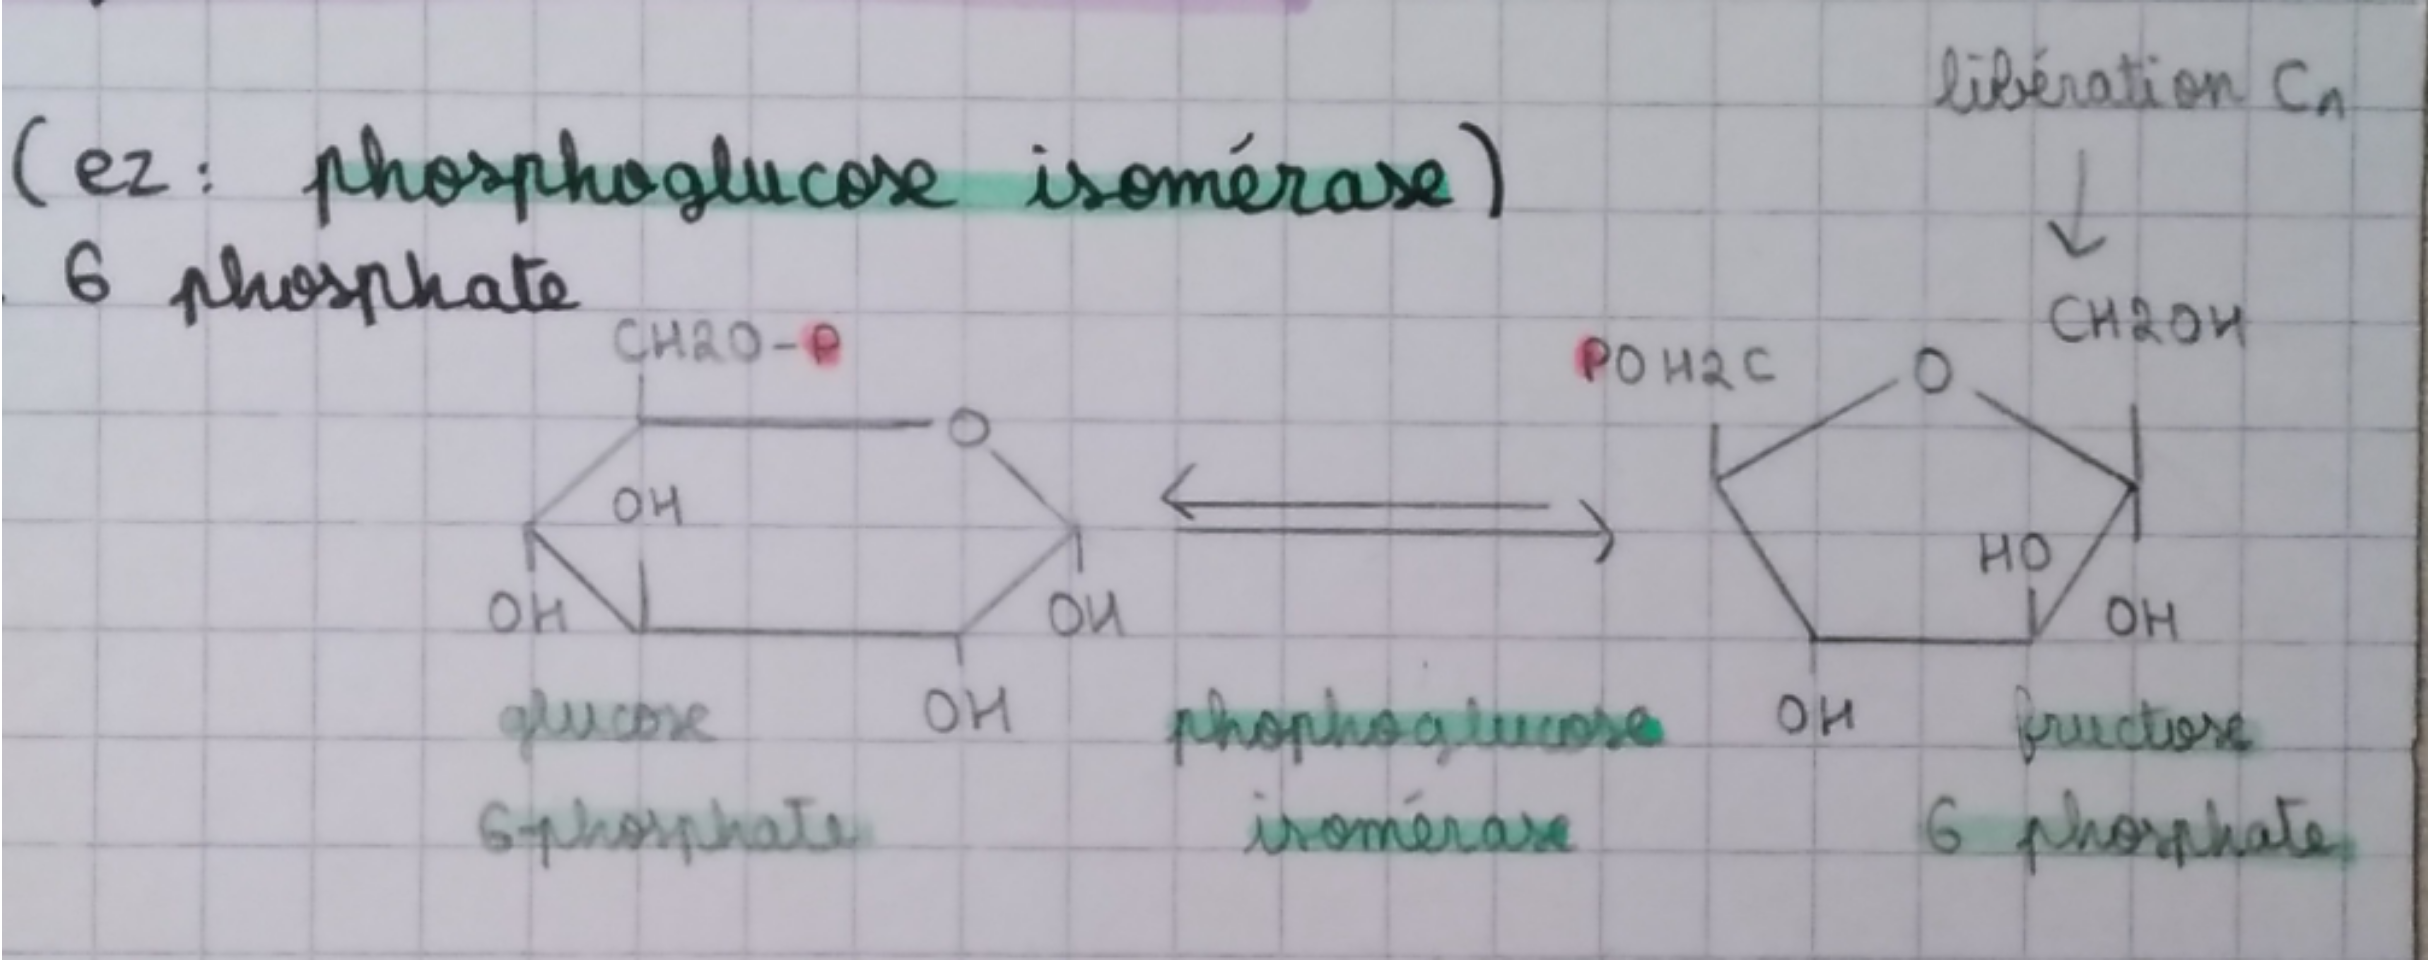 libération Cn
(ez: phosphoglucose isomérase)
6 phosphate
CH2O-P
POH2C
O
CH2OH
O
OH
HO
OH
OH
OH
OH
OH
glucose
phophoglucose
fructose
6-phosphate
isomérase
6 phosphate